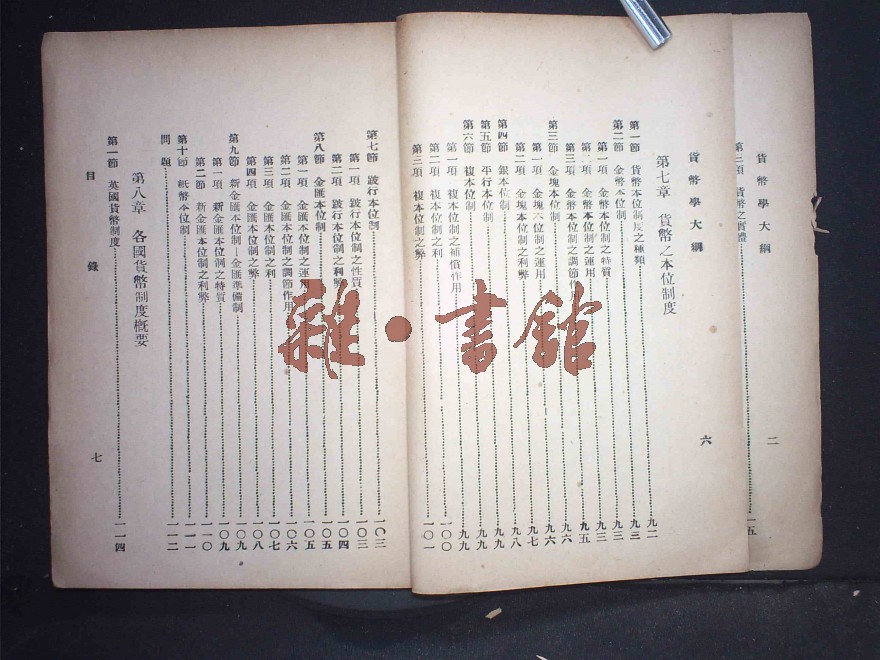 貨幣學大綱
二
第三項 貨幣之實體 一五
貨幣學大綱
六
第七章 貨幣之本位制度
第一節 貨幣本位制度之種類 九二
第二節 金幣本位制 九三
第一項 金幣本位制之特質 九三
第二項 金幣本位制之運用 九五
第三項 金幣本位制之調節作用 九六
第三節 金塊本位制 九六
第一項 金塊本位制之運用 九七
第二項 金塊本位制之利弊 九八
第四節 銀本位制 九九
第五節 平行本位制 九九
第六節 複本位制 九九
第一項 複本位制之補償作用 一〇〇
第二項 複本位制之利 一〇〇
第三項 複本位制之弊 一〇一
第七節 跛行本位制 一〇三
第一項 跛行本位制之性質 一〇三
第二項 跛行本位制之利弊 一〇四
第八節 金匯本位制 一〇五
第一項 金匯本位制之運用 一〇五
第二項 金匯本位制之調節作用 一〇六
第三項 金匯本位制之利 一〇七
第四項 金匯本位制之弊 一〇八
第九節 新金匯本位制—金匯準備制 一〇九
第一項 新金匯本位制之特質 一〇九
第二節 新金匯本位制之利弊 一一〇
第十節 紙幣本位制 一一一
問題 一一二
第八章 各國貨幣制度概要
第一節 英國貨幣制度 一一四
目錄
七
雜·書館